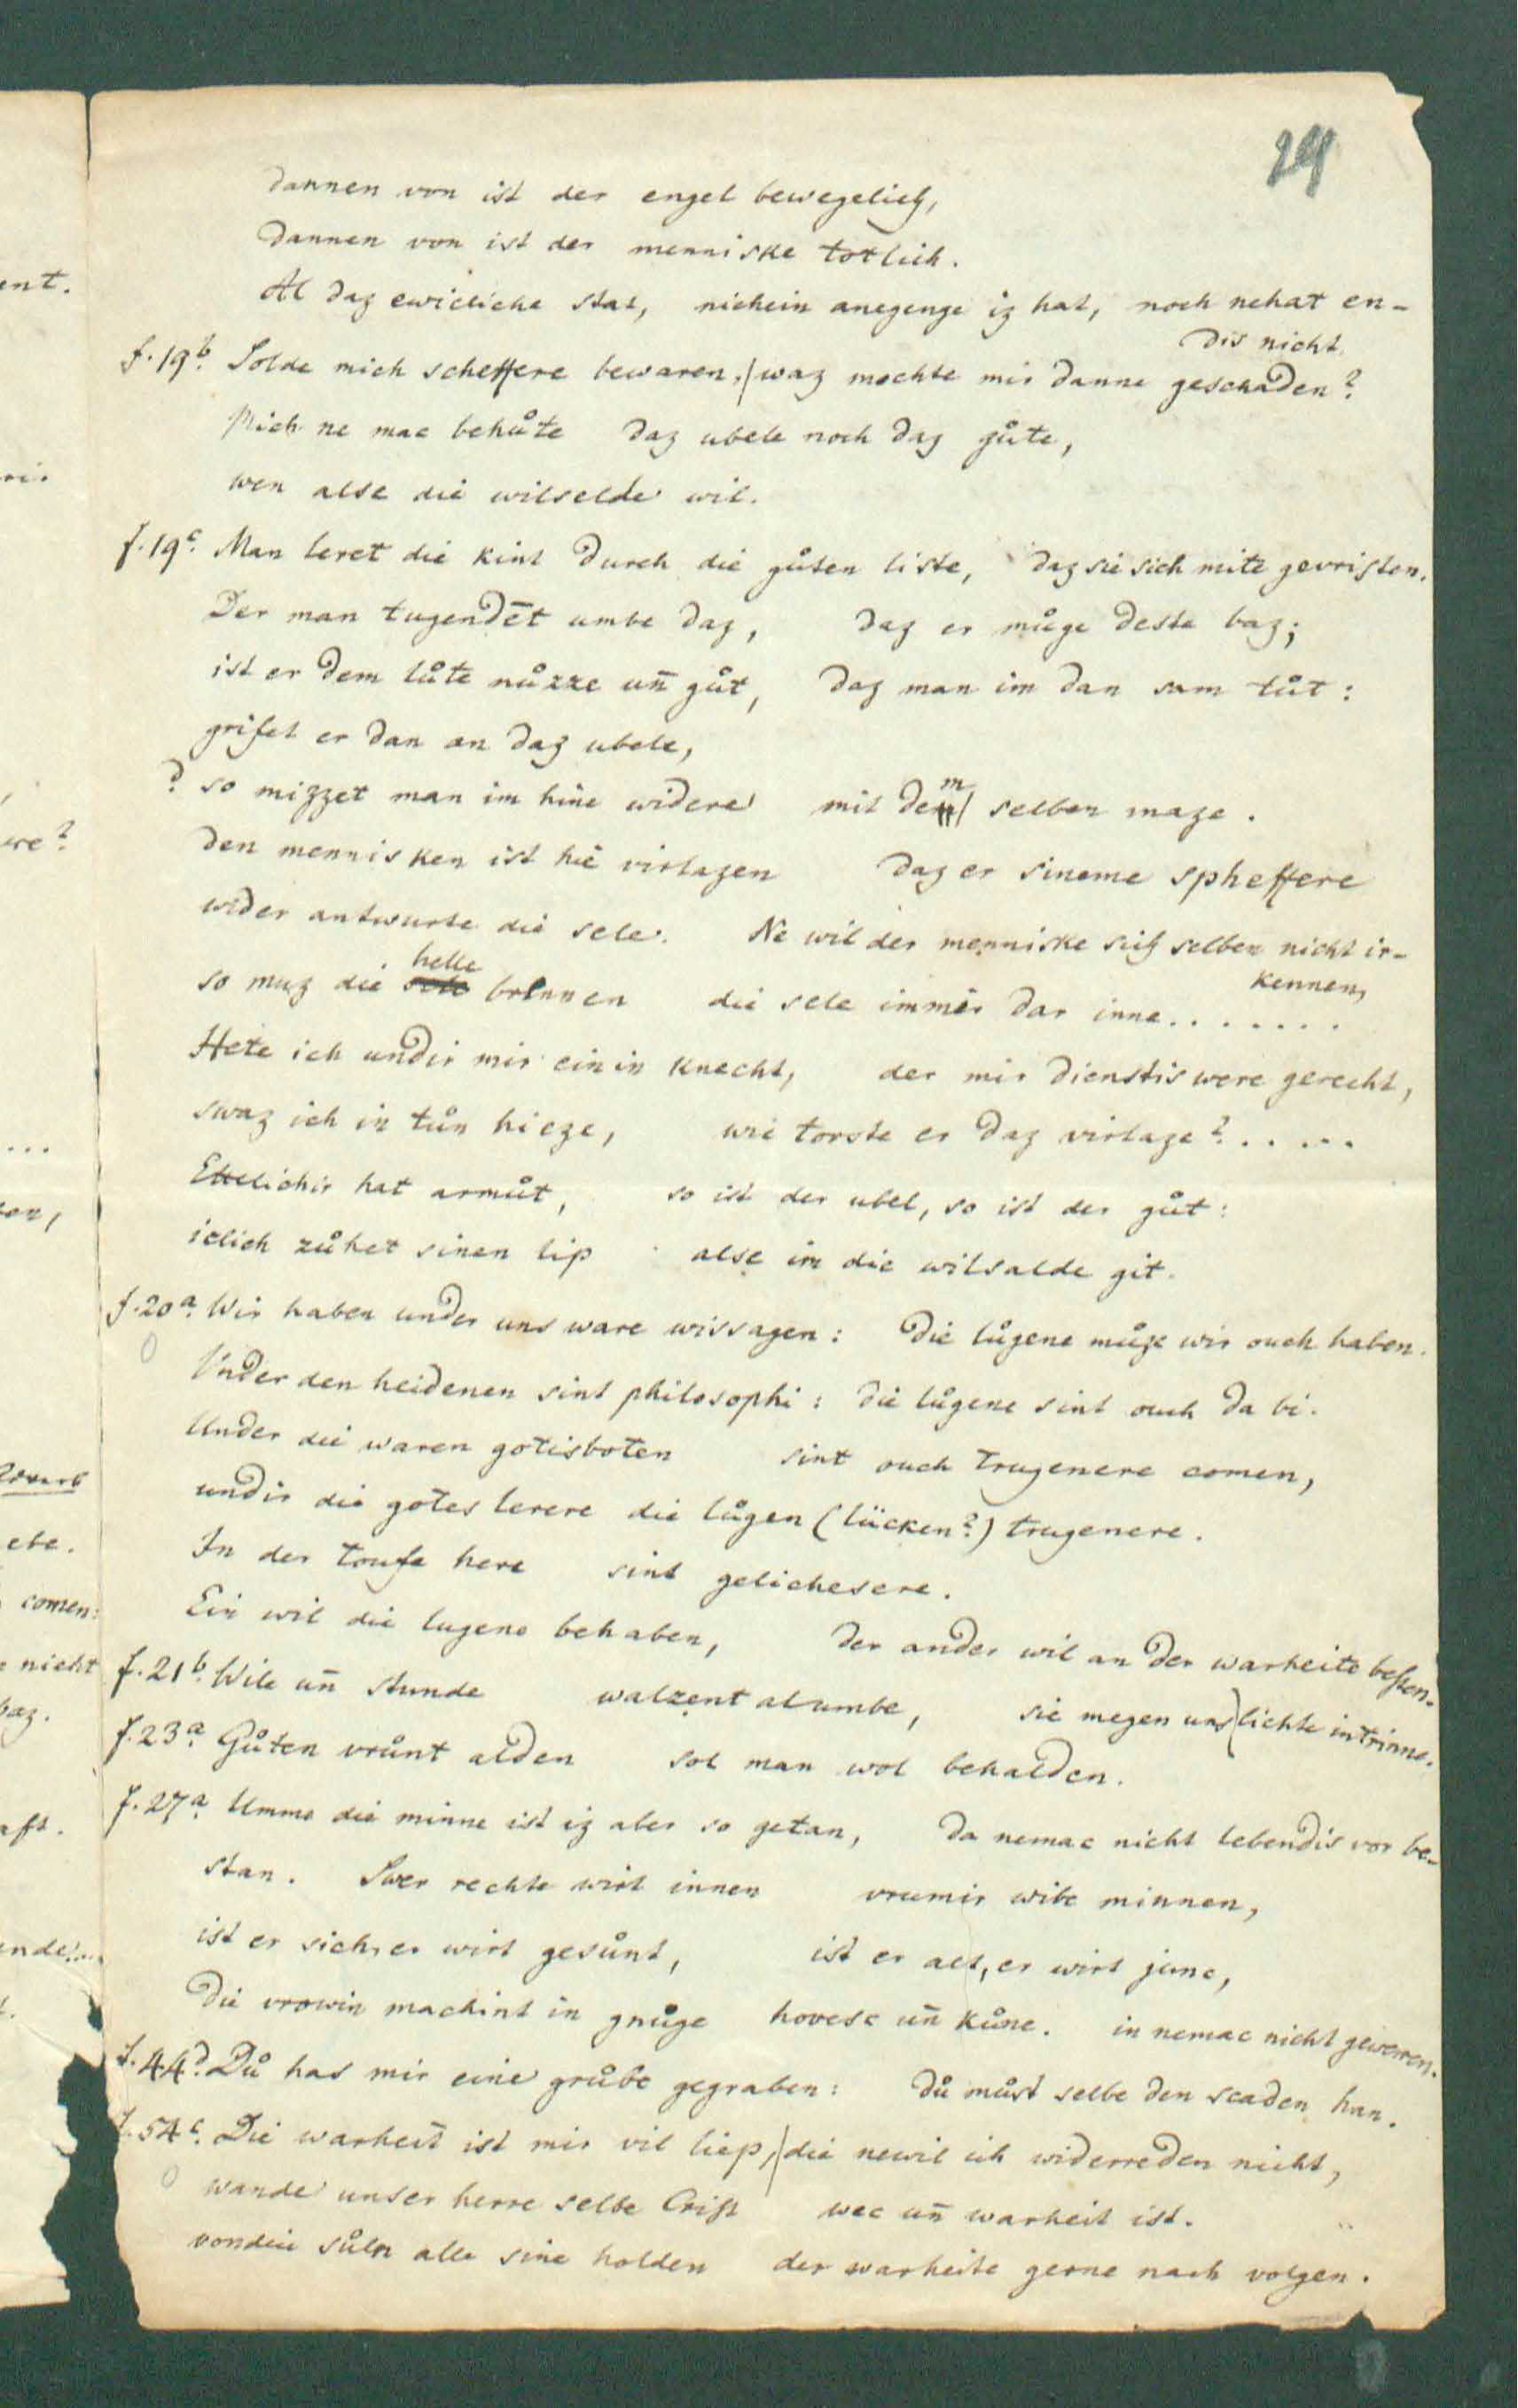 24
dannen von ist der engel bewegelich,
dannen von ist der menniske totlich.
Al daz ewicliche stat, nichein anegenge iz hat, noch nehat en-
dis nicht.
f. 19b. Solde mich scheffere bewaren,/ waz mochte mir danne geschaden?
Mich ne mac behůte daz ubele noch daz gůte,
wen alse die wilselde wil.
f. 19c. Man leret die kint durch die gůten liste, daz sie sich mite gevristen.
Der man tugendēt umbe daz, daz er můge deste baz;
ist er dem lůte nůzze un̄ gůt, daz man im dan sam tůt:
grifet er dan an daz ubele,
? so mizzet man im hine widere mit dem selben maze.
den mennisken ist hie virlazen daz er sineme spheffere
wider antwurte die sele. Ne wil der menniske sich selben nicht ir-
kennen,
so muz die helle brinnen die sele immer dar inne.......
Hete ich undir mir einin knecht, der mir dienstis were gerecht,
swaz ich in tůn hieze, wie torste er daz virlaze?.....
Ettelichir hat armůt, so ist der ubel, so ist der gůt:
iclich zůhet sinen lip alse im die wilsalde git.
f. 20a. Wir haben under uns ware wissagen: die lůgene můze wir ouch haben.
Under den heidenen sint philosophi: die lůgene sint ouch da bi.
Under die waren gotisboten sint ouch trugenere comen,
undir die gotes lerere die lůgen (lücken?) trugenere.
In der toufe here sint gelichesere.
Ein wil die lugene behaben, der ander wil an der warheite besten.
f. 21b. Wile un̄ stunde walzent alumbe, sie megen uns/ lichte intrinne.
f. 23a. Gůten vrůnt alden sol man wol behalden.
f. 27a. Umme die minne ist iz aber so getan, da nemac nicht lebendis vor be-
stan. Swer rechte wirt innen vrumir wibe minnen,
ist er sich, er wirt gesůnt, ist er alt, er wirt junc,
die vrowin machint in gnůge hovesc un̄ kůne. in nemac nicht gewerren.
f. 44d. Dů has mir eine grůbe gegraben: dů můst selbe den scaden han.
f. 54c. Die warheit ist mir vil liep,/ die newil ich widerreden nicht,
wande unser herre selbe Crist wec un̄ warheit ist.
vondiu sůln alle sine holden der warheite gerne nach volgen.
ent.
comen:
nicht
baz.